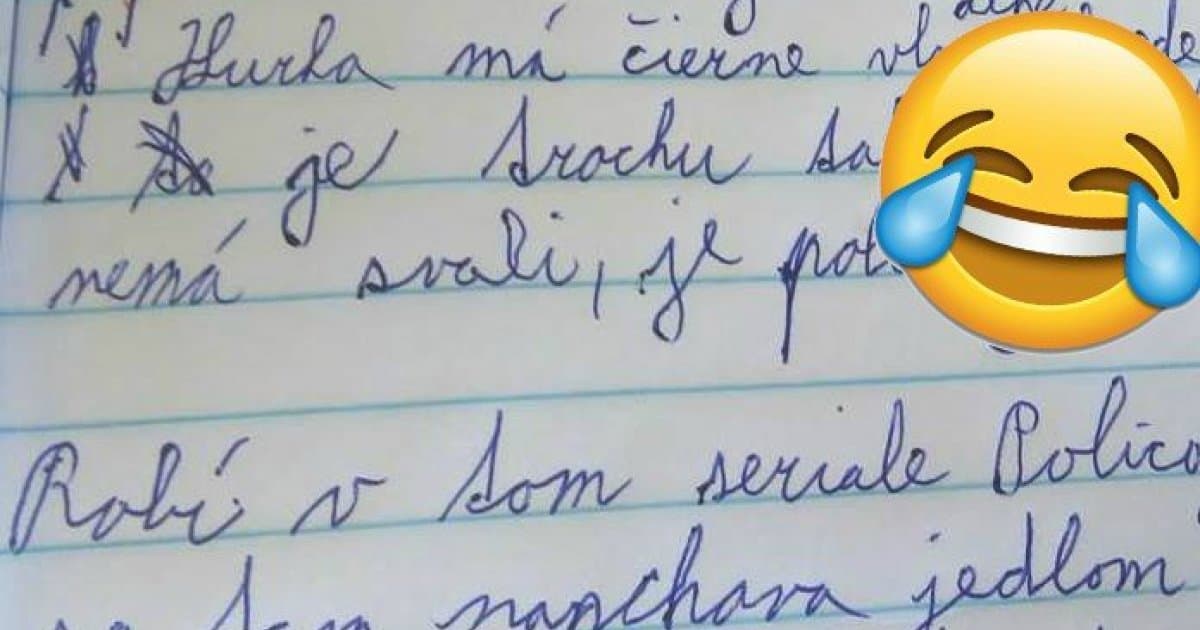 Hurka má čierne
je trochu
nemá svali, je
Robí v tom seriale
sa tam napchava jedlom